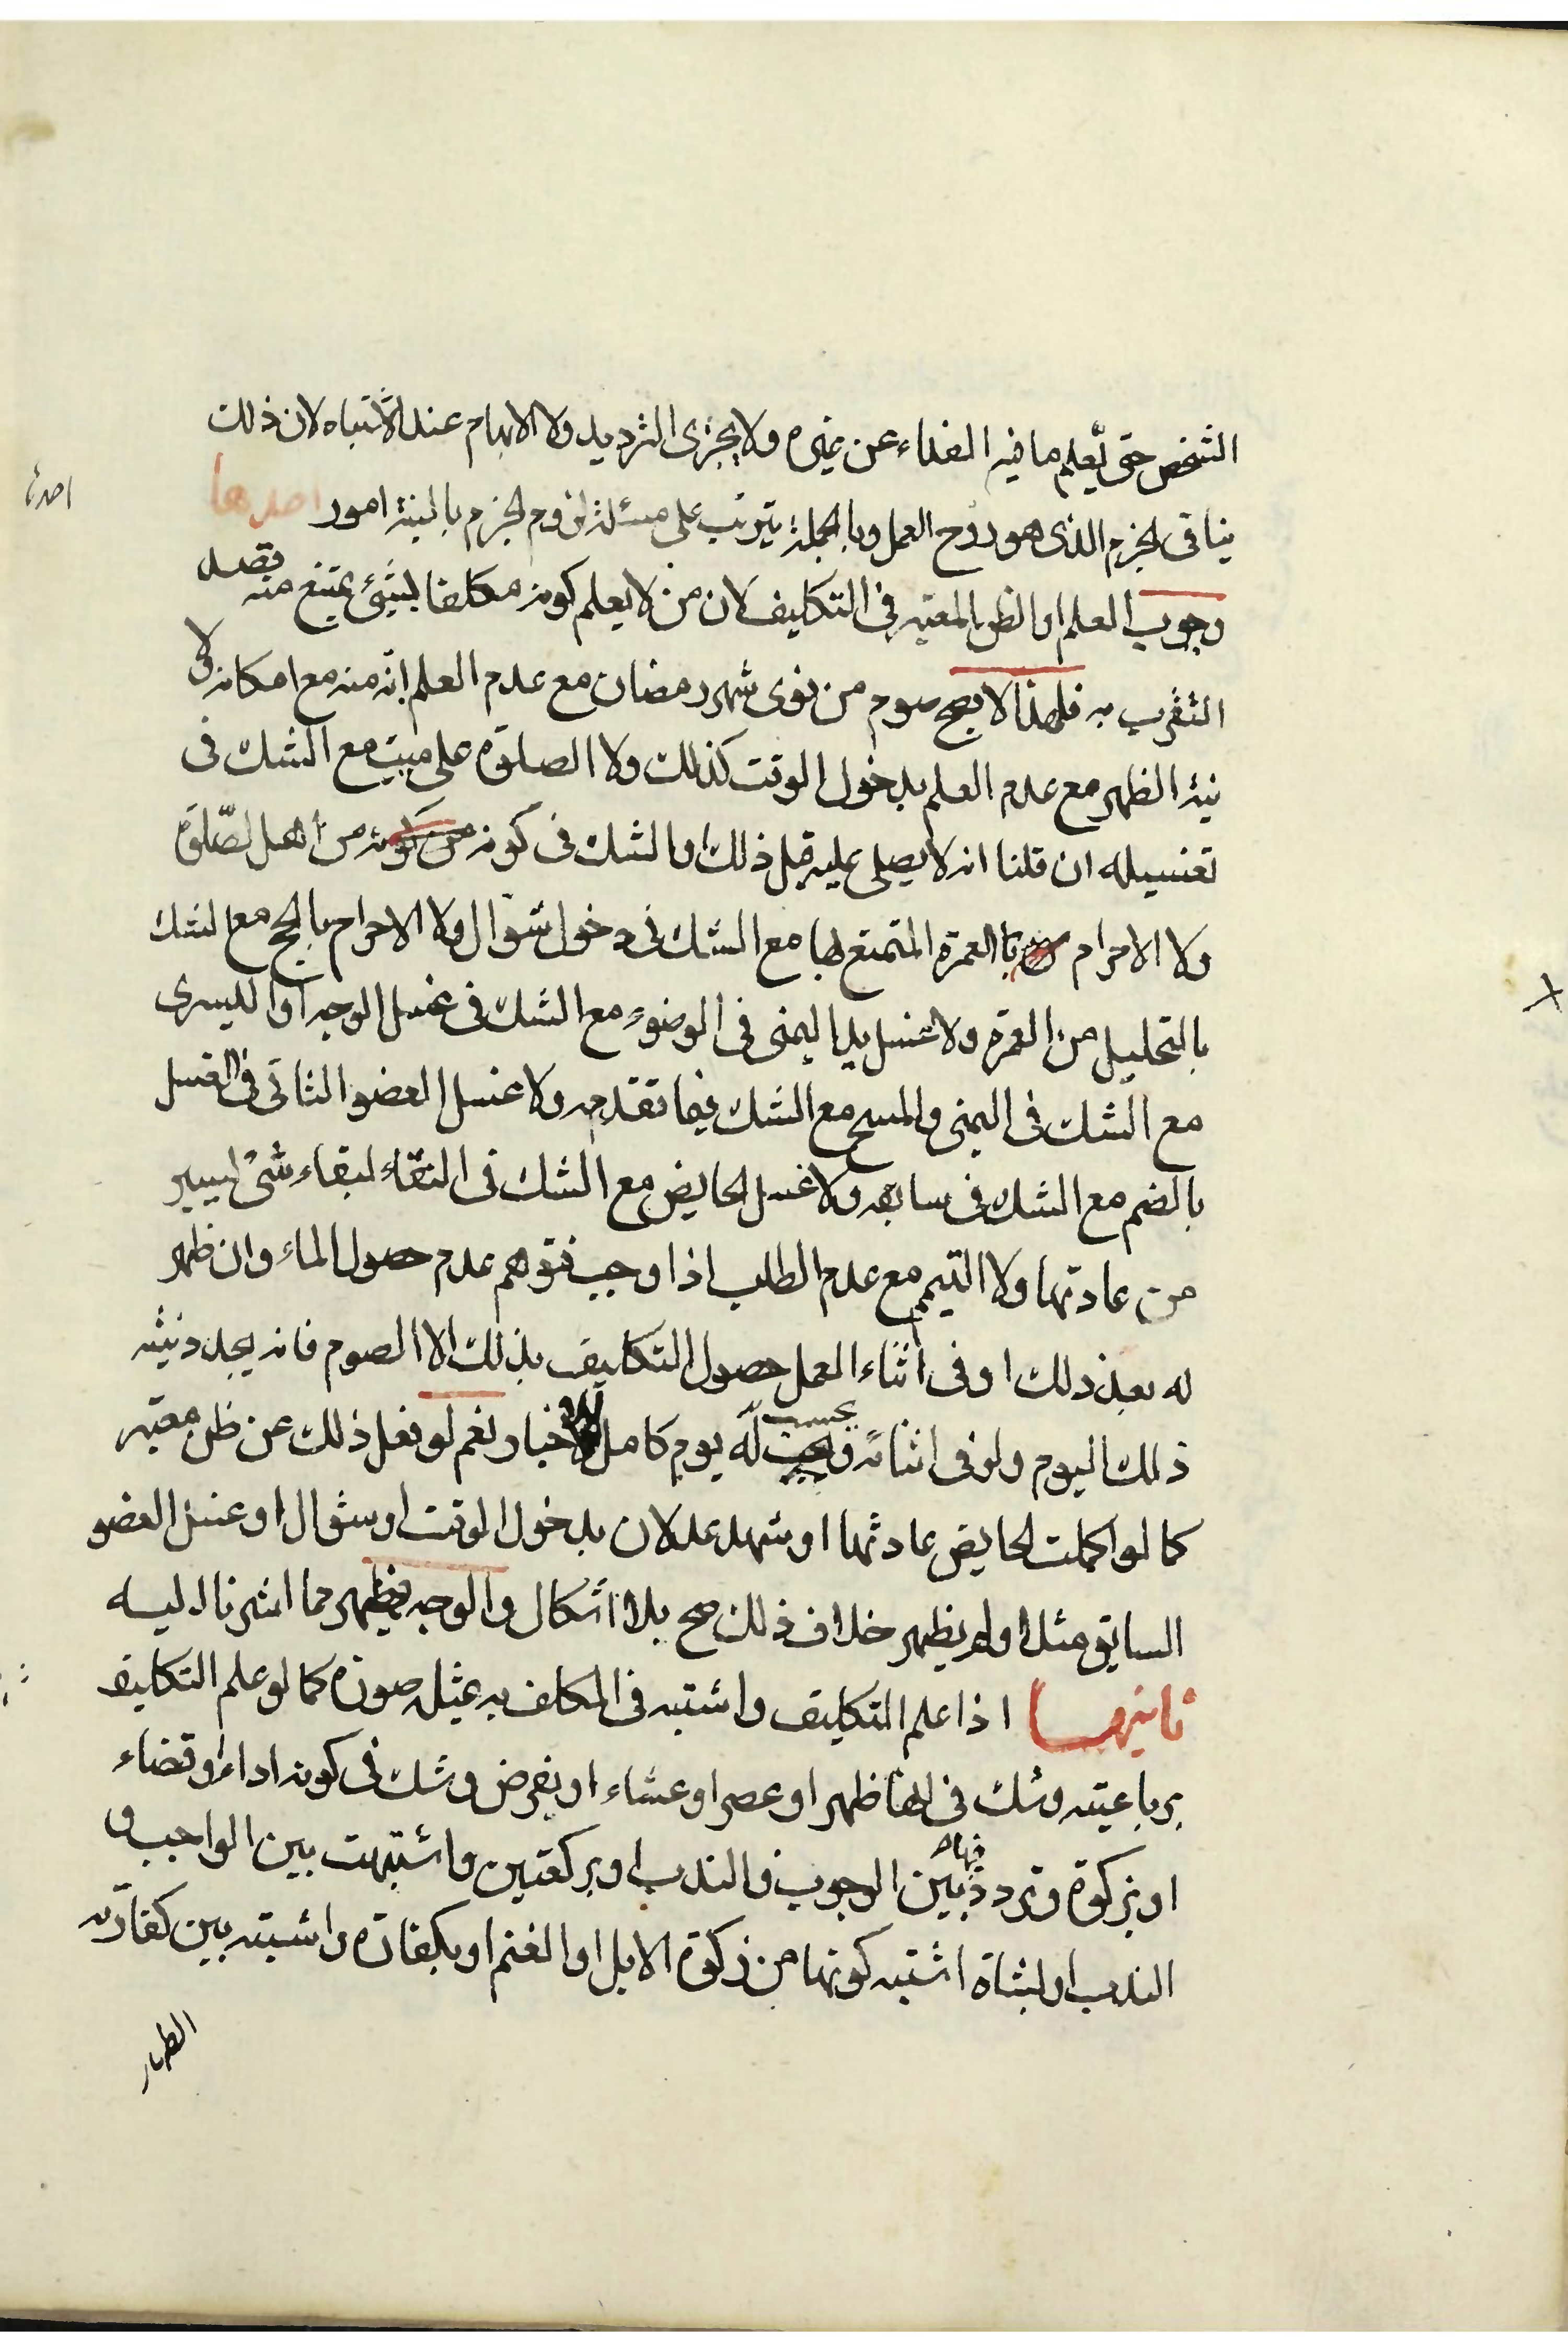 الشخص حتى يعلم ما فيه الفداء عن غيره ولا يجزى الترديد ولا الابهام عند الاشتباه لان ذلك
ينافى الجزم الذى هو روح العمل وبالجملة يترتب على مسئلة لزوم الجزم بالنية امور احدها
وجوب العلم او الظن المعتبر فى التكليف لان من لا يعلم كونه مكلفا بشئ يمتنع منه قصد
التقرب به فلهذا لا يصح صوم من نوى شهر رمضان مع عدم العلم انه منه مع امكانه ولا
نية الظهر مع عدم العلم بدخول الوقت كذلك ولا الصلوة على ميت مع الشك فى
تغسيله ان قلنا انه لا يصلى عليه قبل ذلك او الشك فى كونه من اهل الصلوة
ولا الاحرام بالعمرة المتمتع بها مع الشك فى دخول شوال ولا الاحرام بالحج مع الشك
بالتحليل من العمرة ولا غسل يد اليمنى فى الوضوء مع الشك فى غسل الوجه او اليسرى
مع الشك فى اليمنى والمسح مع الشك فيما تقدمه ولا غسل العضو الثانى فى الغسل
بالضم مع الشك فى سابقه ولا غسل الحايض مع الشك فى النقاء لبقاء شئ يسير
من عادتها ولا التيمم مع عدم الطلب اذا وجب فتوهم عدم حصول الماء وان ظهر
له بعد ذلك او فى اثناء العمل حصول التكليف بذلك الا الصوم فانه يجدد نيته
ذلك اليوم ولو فى اثنائه ويحسب له يوم كامل للاخبار نعم لو فعل ذلك عن ظن معتبر
كما لو اكملت الحايض عادتها او شهد عدلان بدخول الوقت او شوال او غسل العضو
السابق مثلا ولم يظهر خلاف ذلك صح بلا اشكال والوجه يظهر مما اشرنا اليه
ثانيها اذا علم التكليف واشتبه فى المكلف به عمثل صورة كما لو علم التكليف
برباعية وشك فى انها ظهر او عصر او عشاء او بفرض وشك فى كونه اداء او قضاء
او بزكوة وتردد فيها بين الوجوب والندب او بركعتين واشتبهت بين الواجب و
الندب او بشاة اشتبه كونها من زكوة الابل او الغنم او بكفارة واشتبه بين كفارة